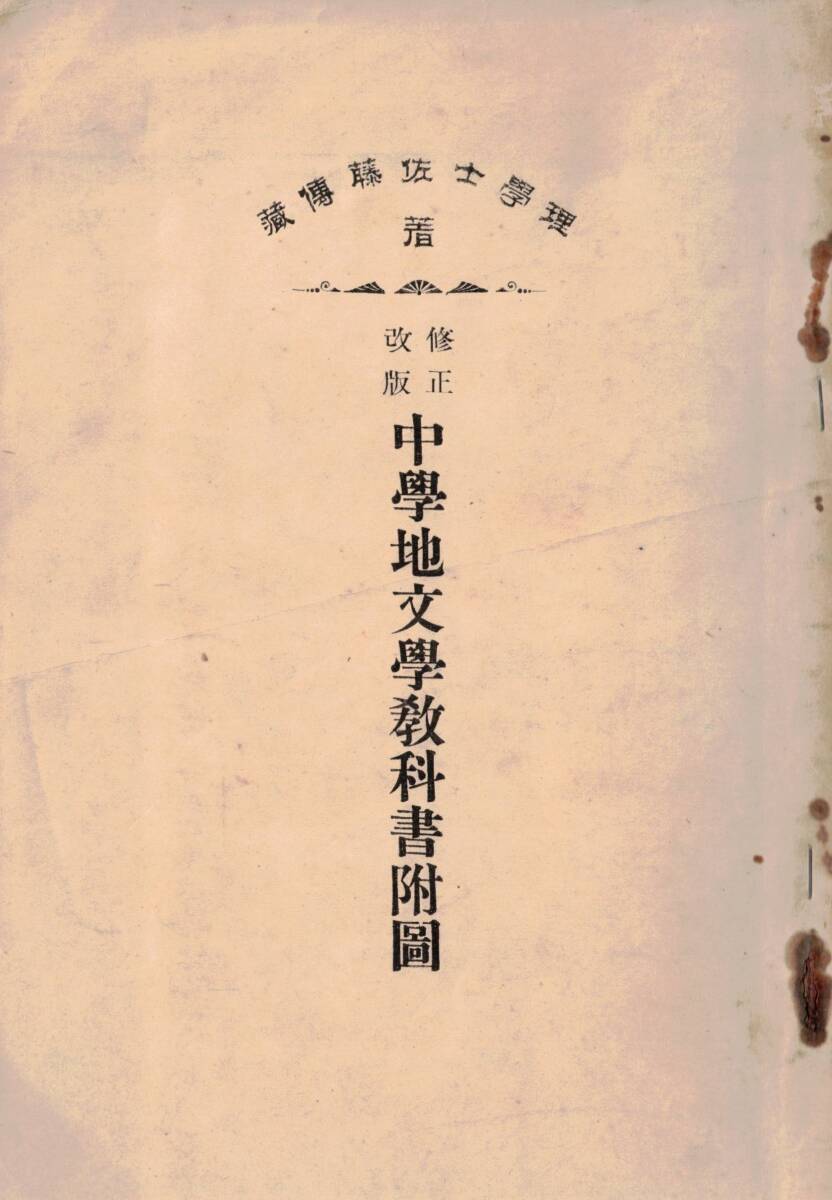 理學士佐藤傳藏
著
修正
改版
中學地文學敎科書附圖